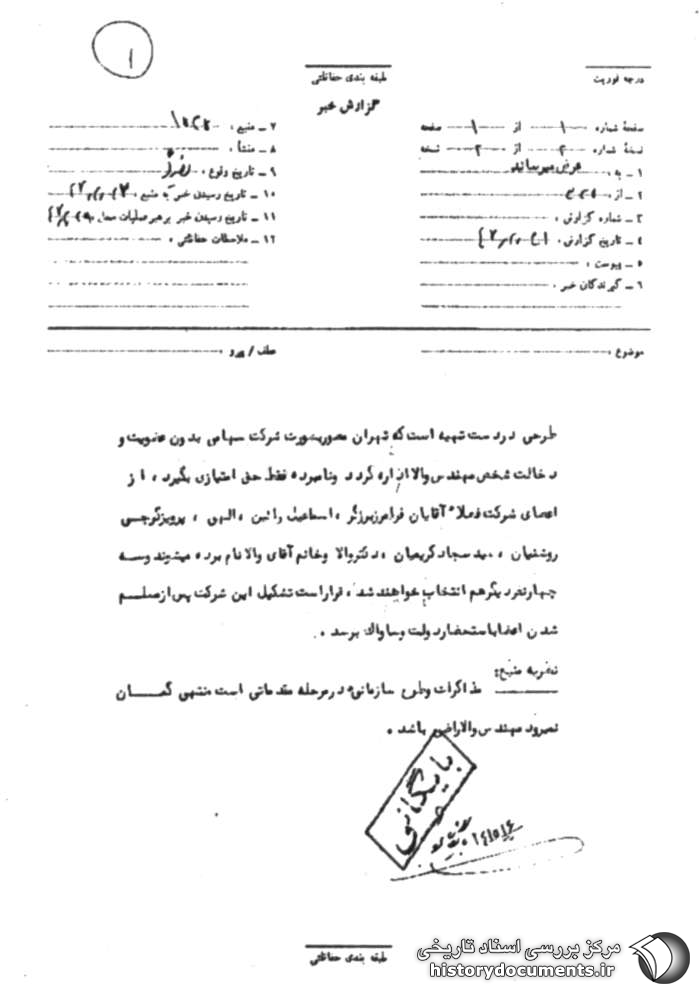 ۱
طبقه بندی حفاظتی
درجه فوریت
گزارش خبر
صفحهٔ شماره ۱ از ۱ صفحه
نسخهٔ شماره ۲ از ۲ نسخه
۱ ـ به : عرض میرساند
۲ ـ از :
۳ ـ شماره گزارش :
۴ ـ تاریخ گزارش :
۵ ـ پیوست :
۶ ـ گیرندگان خبر :
۷ ـ منبع :
۸ ـ منشأ :
۹ ـ تاریخ وقوع :
۱۰ ـ تاریخ رسیدن خبر به منبع :
۱۱ ـ تاریخ رسیدن خبر برهبر عملیات محل
۱۲ ـ ملاحظات حفاظتی :
موضوع :
عطف / پیرو :
طرحی در دست تهیه است که تهران مصور بصورت شرکت سهامی بدون عضویت و
دخالت شخص مهندس والا اداره گردد و نامبرده فقط حق امتیازی بگیرد ، از
اعضای شرکت فعلاً آقایان فرامرز برزگر ، اسماعیل رائین ، الهی ، پرویز گرجی
روشنیان ، سید سجاد کریمیان ، دکتر والا و خانم آقای والا نام برده میشوند و سه
چهار نفر دیگر هم انتخاب خواهند شد ، قرار است تشکیل این شرکت پس از مسلم
شدن اعضا باستحضار دولت و ساواک برسد .
نظریه منبع:
مذاکرات و طرح سازمانی در مرحله مقدماتی است منتهی گمان
نمیرود مهندس والا راضی باشد .
بایگانی
طبقه بندی حفاظتی
مرکز بررسی اسناد تاریخی
historydocuments.ir